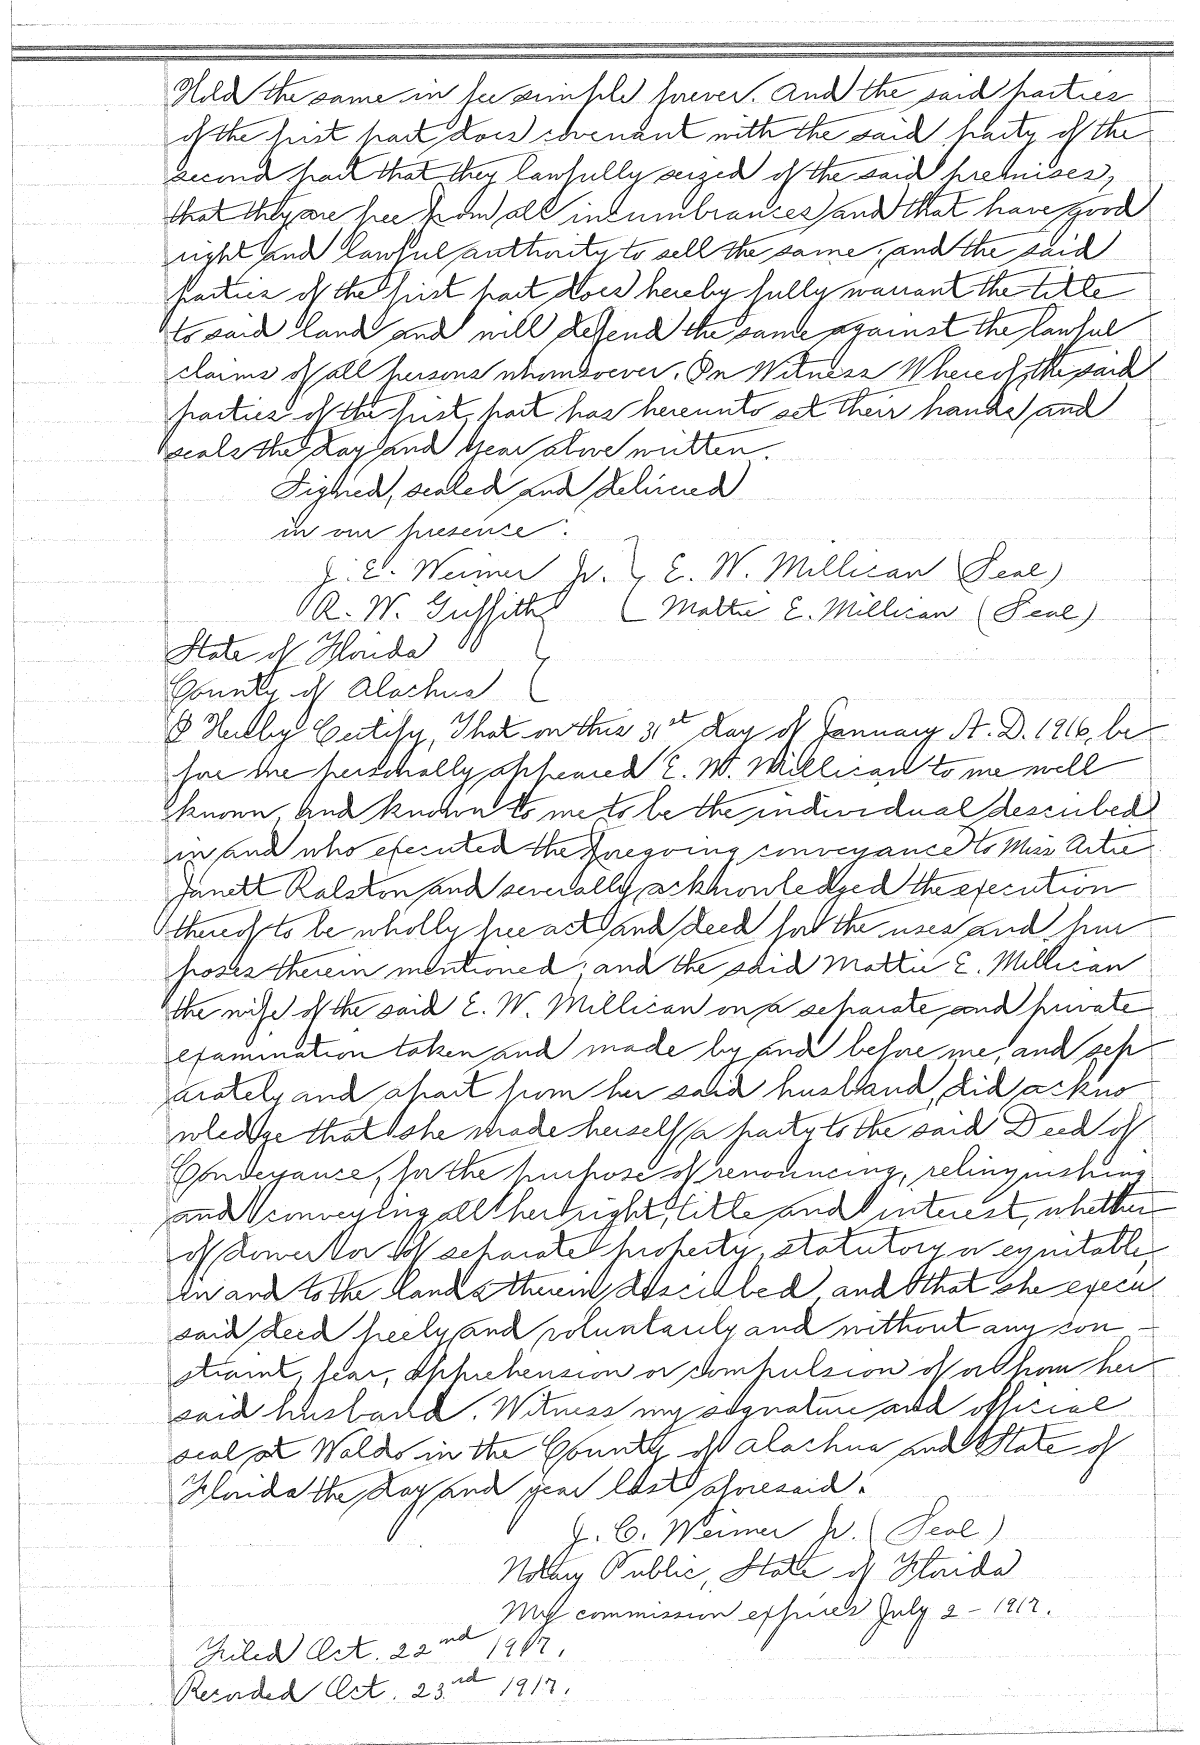 Hold the same in fee simple forever. And the said parties
of the first part does covenant with the said party of the
second part that they lawfully seized of the said premises,
that they are free from all incumbrances and that have good
right and lawful authority to sell the same; and the said
parties of the first part does hereby fully warrant the title
to said land and will defend the same against the lawful
claims of all persons whomsoever. In Witness Whereof, the said
parties of the first part has hereunto set their hands and
seals the day and year above written.
Signed, sealed and delivered
in our presence:
J. E. Weimer Jr. } E. W. Millican (Seal)
R. W. Griffith { Mattie E. Millican (Seal)
State of Florida }
County of Alachua {
I Hereby Certify, That on this 31st day of January A. D. 1916, be
fore me personally appeared E. W. Millican to me well
known and known to me to be the individual described
in and who executed the foregoing conveyance to Miss Artie
Janett Ralston and severally acknowledged the execution
thereof to be wholly free act and deed for the uses and pur
poses therein mentioned; and the said Mattie E. Millican
the wife of the said E. W. Millican on a separate and private
examination taken and made by and before me, and sep
arately and apart from her said husband, did ackno
wledge that she made herself a party to the said Deed of
Conveyance, for the purpose of renouncing, relinquishing
and conveying all her right, title and interest, whether
of dower or of separate property, statutory or equitable,
in and to the lands therein described, and that she execu
said deed freely and voluntarily and without any con-
straint, fear, apprehension or compulsion of or from her
said husband. Witness my signature and official
seal at Waldo in the County of Alachua and State of
Florida the day and year last aforesaid.
J. C. Weimer Jr. (Seal)
Notary Public, State of Florida
My commission expires July 2 - 1917.
Filed Oct. 22nd 1917.
Recorded Oct. 23rd 1917.